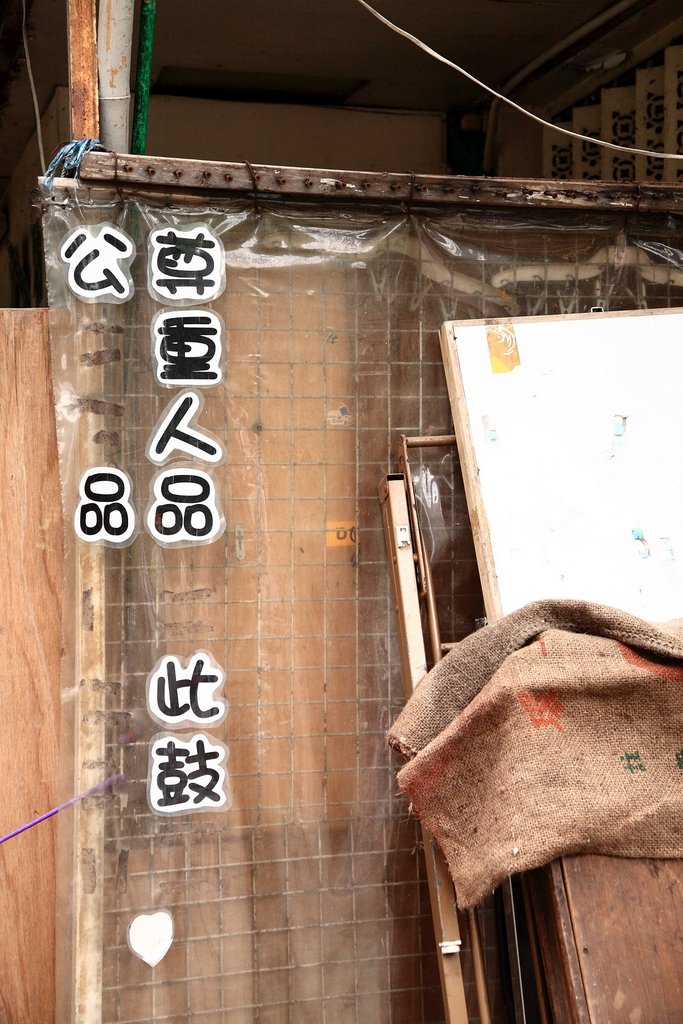 尊重人品 此鼓
公 品